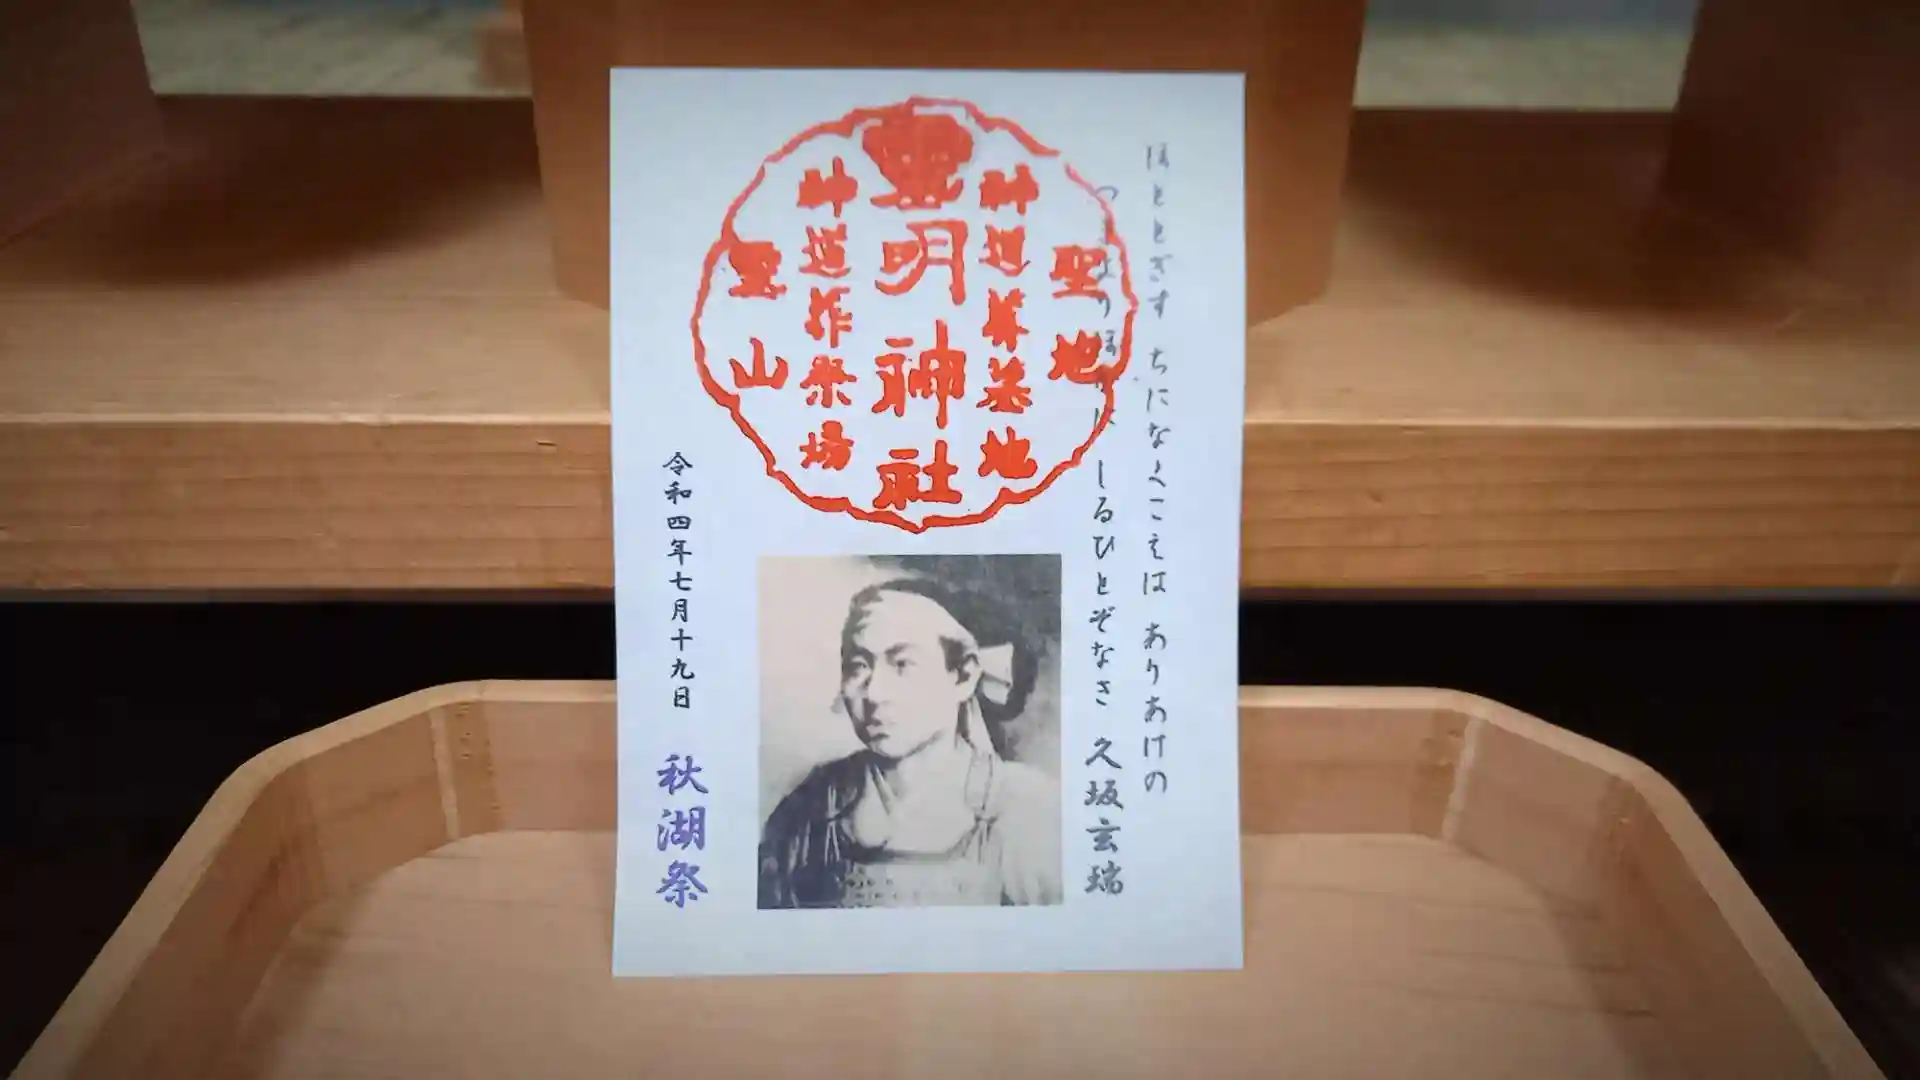 ほととぎす ちになくこえは ありあけの
つきよりほかに しるひとぞなき 久坂玄瑞
聖地
神道葬墓地
霊明神社
神道葬祭場
霊山
令和四年七月十九日 秋湖祭